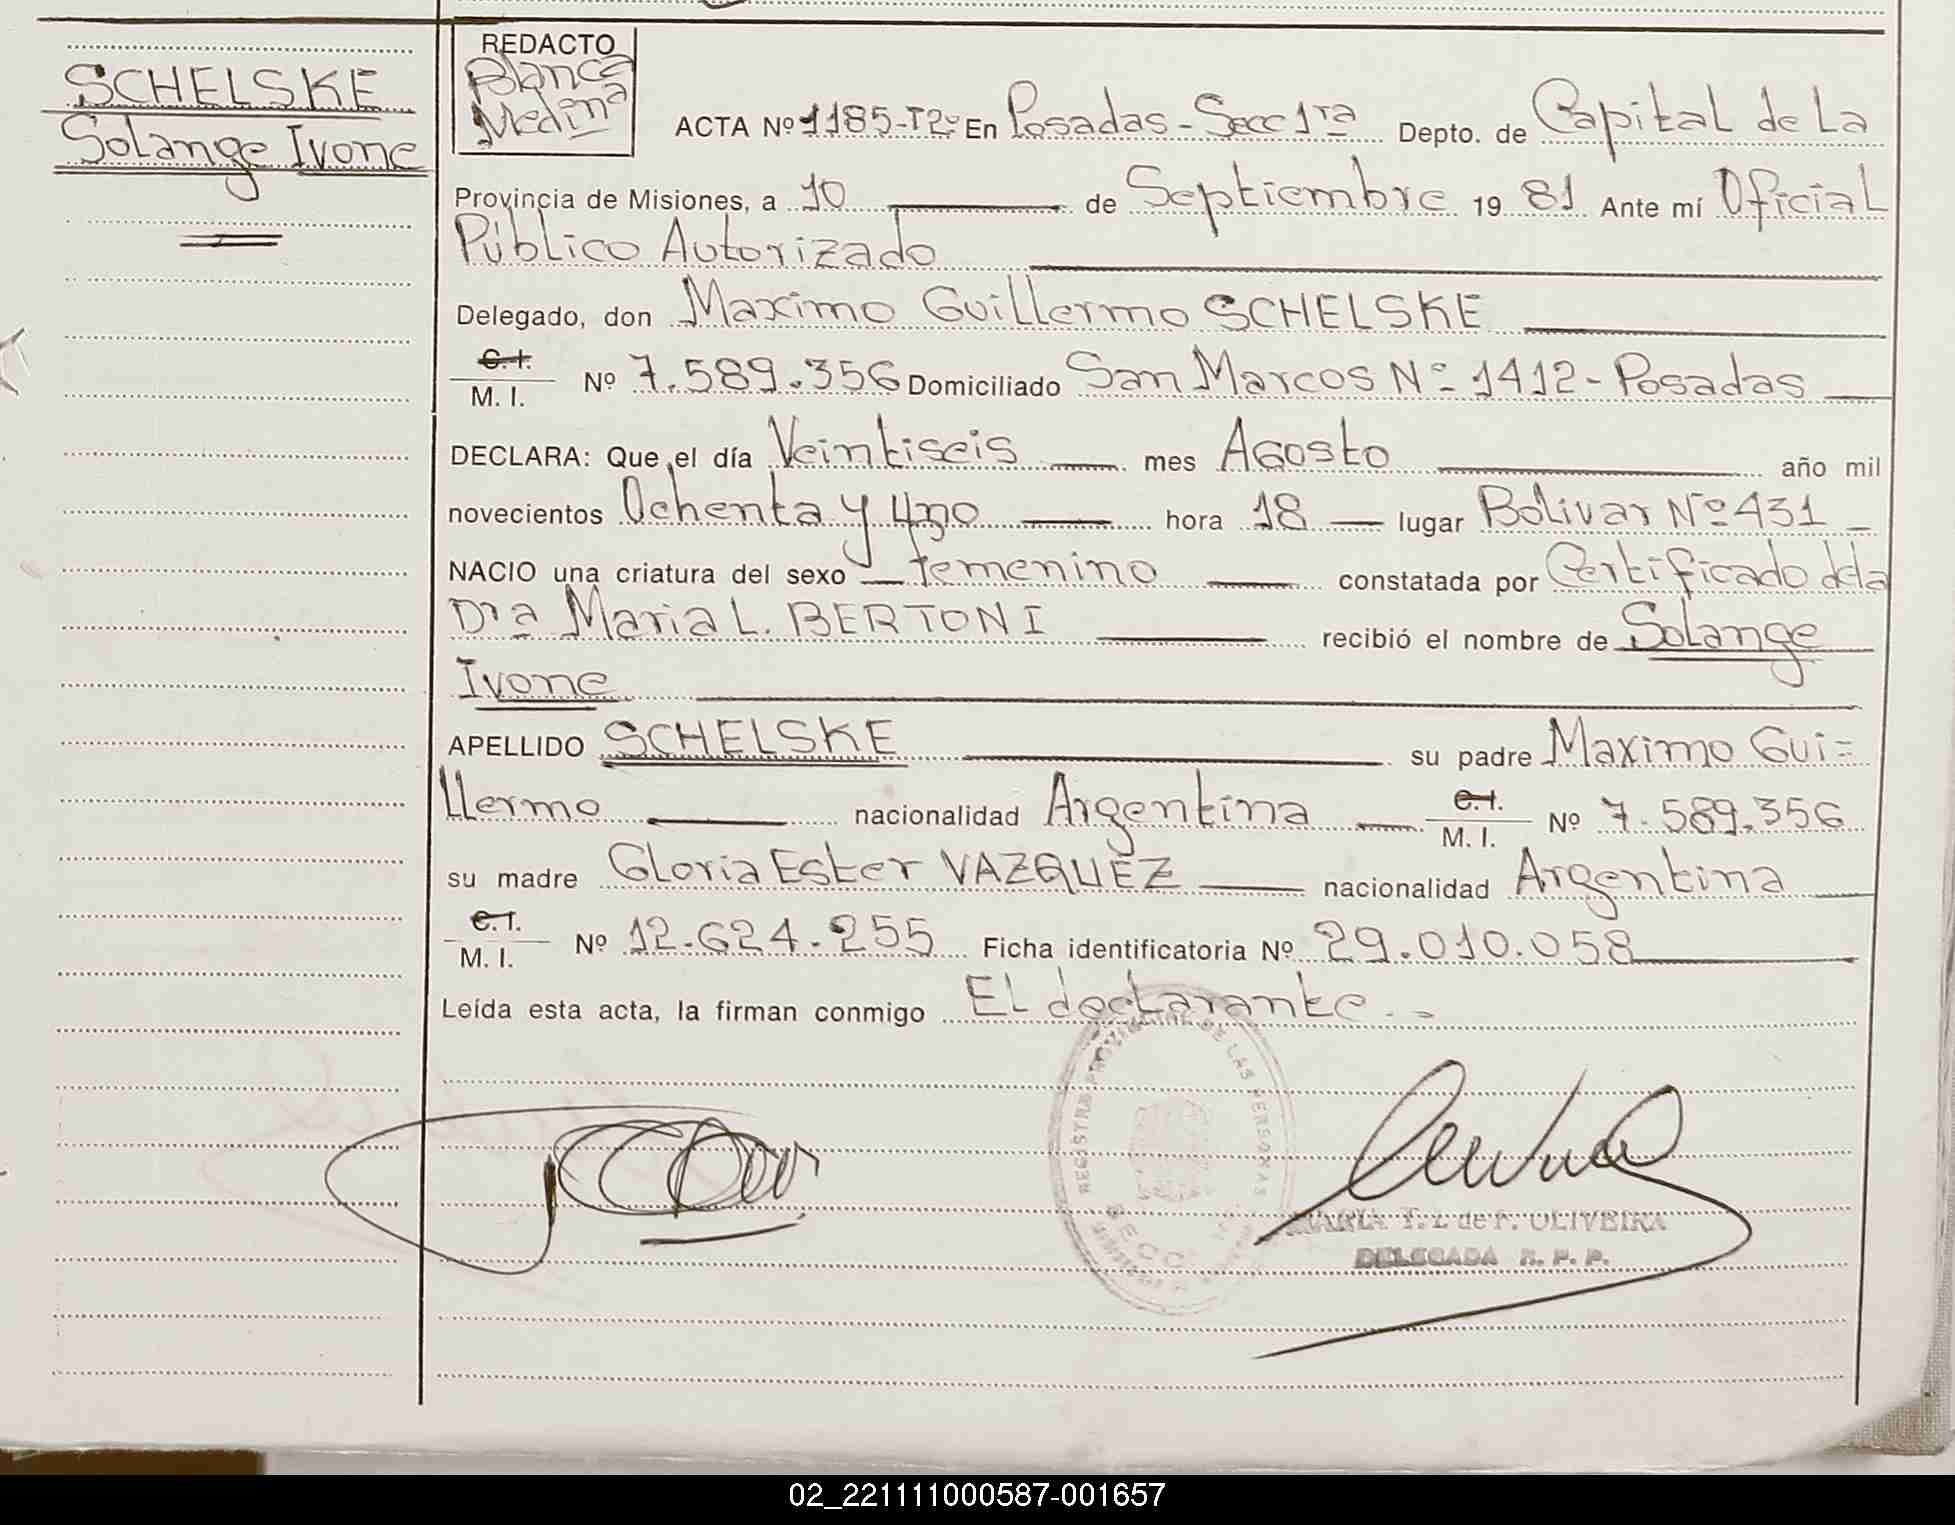 SCHELSKE
Solange Ivone
REDACTO
Blanca
Medina
ACTA Nº 1185-T2º En Posadas - Secc 1ra Depto. de Capital de La
Provincia de Misiones, a 10 de Septiembre 19 81 Ante mí Oficial
Público Autorizado
Delegado, don Maximo Guillermo SCHELSKE
C. I.
M. I. Nº 7.589.356 Domiciliado San Marcos Nº 1412 - Posadas
DECLARA: Que el día Veintiseis mes Agosto año mil
novecientos Ochenta y Uno hora 18 lugar Bolivar Nº 431
NACIO una criatura del sexo femenino constatada por Certificado de la
Dra Maria L. BERTONI recibió el nombre de Solange
Ivone
APELLIDO SCHELSKE su padre Maximo Gui=
llermo nacionalidad Argentina C. I. M. I. Nº 7.589.356
su madre Gloria Ester VAZQUEZ nacionalidad Argentina
C. I.
M. I. Nº 12.624.255 Ficha identificatoria Nº 29.010.058
Leída esta acta, la firman conmigo El declarante. -
DE LAS PERSONAS
SECC
MARIA T. L de P. OLIVEIRA
DELEGADA R. P. P.
02_221111000587-001657